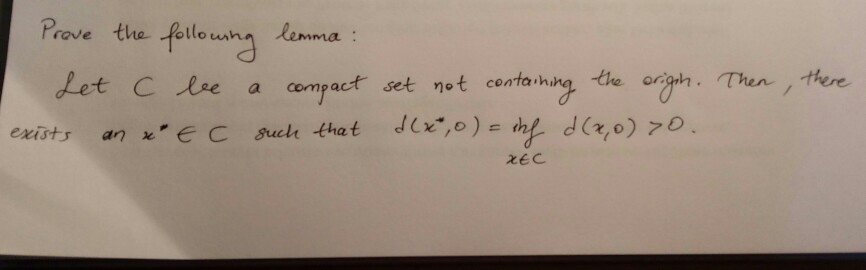 Prove the following lemma :
Let C be a compact set not containing the origin. Then, there
exists an x* ∈ C such that d(x*,0) = inf d(x,0) >0.
x∈C